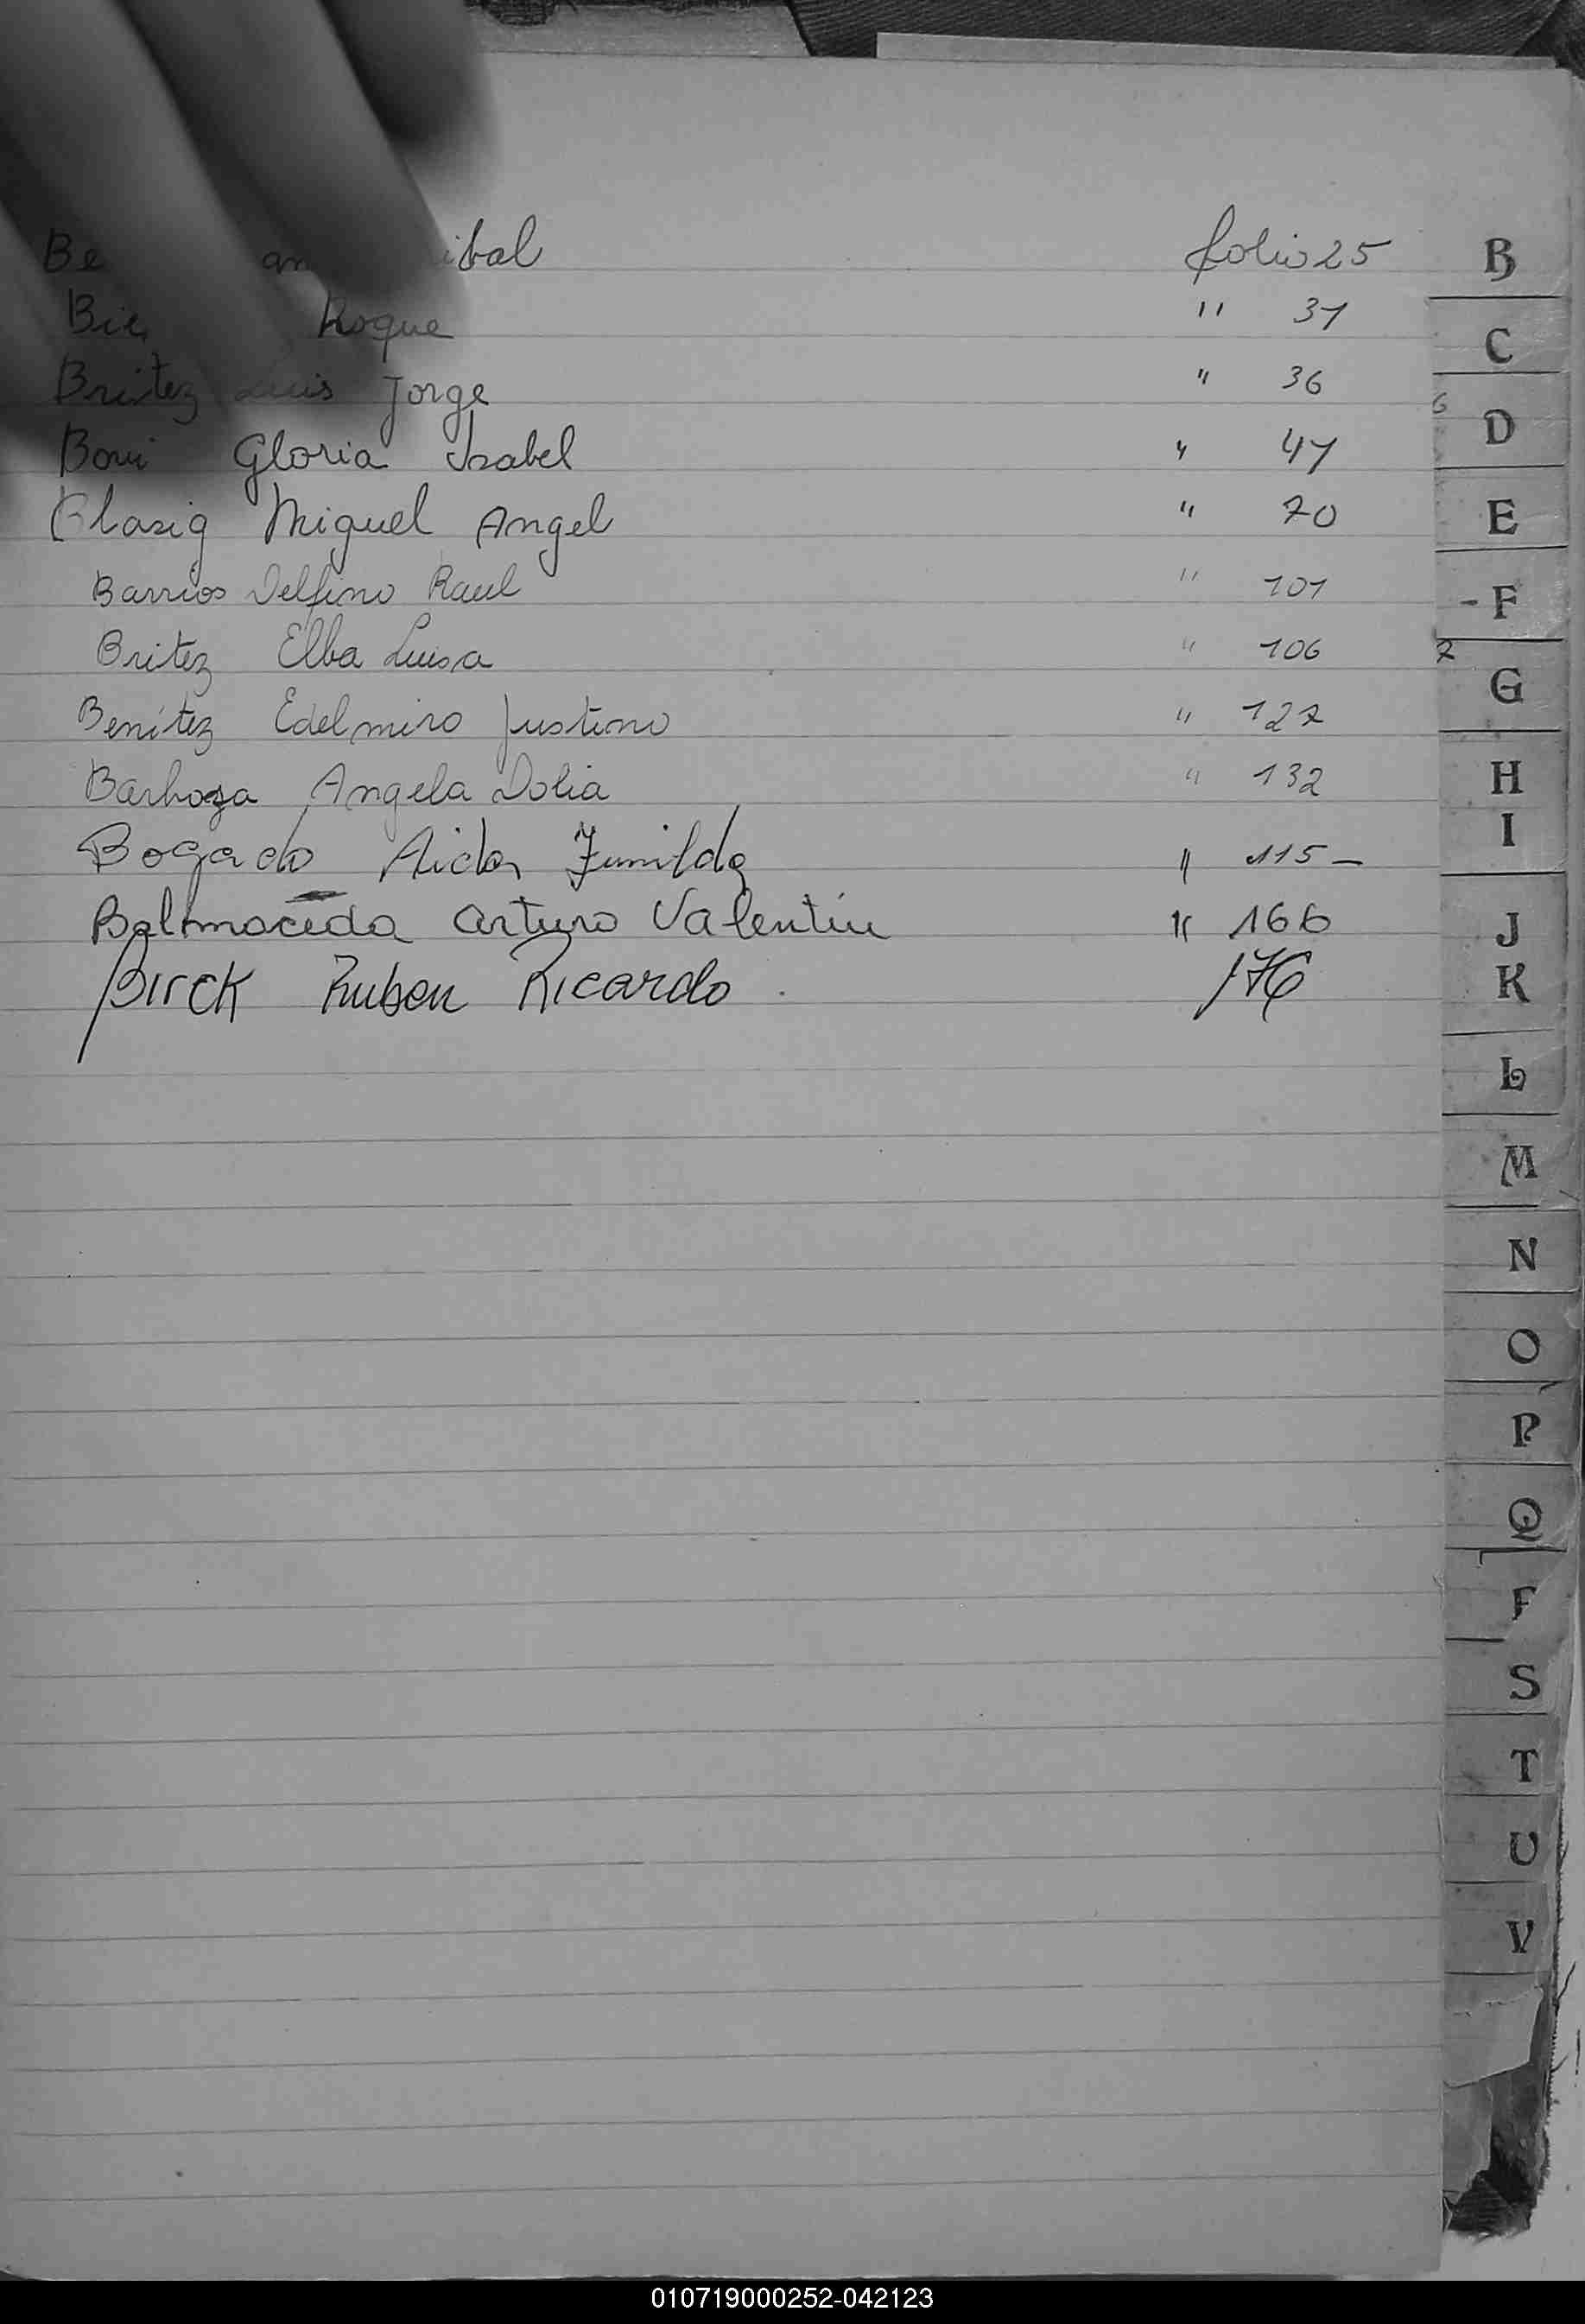 Roque " 31
Britez Luis Jorge " 36
Boni Gloria Isabel " 41
Blasig Miguel Angel " 70
Barrios Delfino Raul " 101
Britez Elba Luisa " 106
Benítez Edelmiro Justino " 127
Barboza Angela Dolia " 132
Bogado Aida Zunilda " 115 -
Balmaceda Arturo Valentín " 166
Birck Ruben Ricardo 176
folio 25
B
C
6
D
E
- F
7
G
H
I
J
K
L
M
N
O
P
Q
S
T
U
V
010719000252-042123